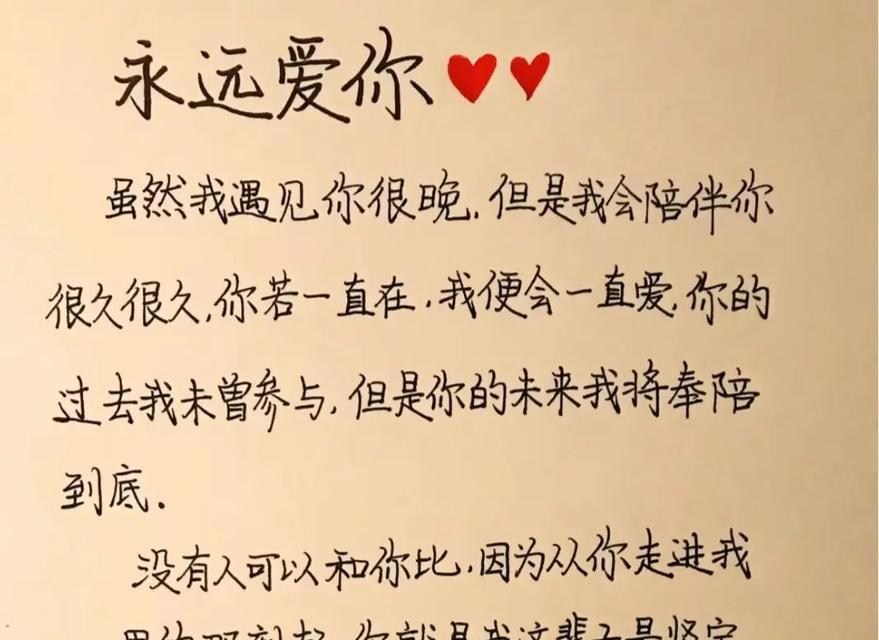 永远爱你
虽然我遇见你很晚.但是我会陪伴你
很久很久,你若一直在,我便会一直爱,你的
过去我未曾参与,但是你的未来我将奉陪
到底.
没有人可以和你比,因为从你走进我
你就是我这辈子最坚定